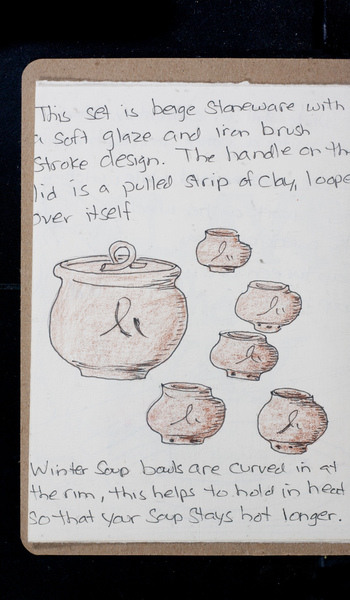 This set is beige Stoneware with
a soft glaze and iron brush
Stroke design. The handle on th
lid is a pulled strip of clay, loope
over itself
Winter Soup bowls are curved in at
the rim, this helps to hold in heat
so that your Soup Stays hot longer.